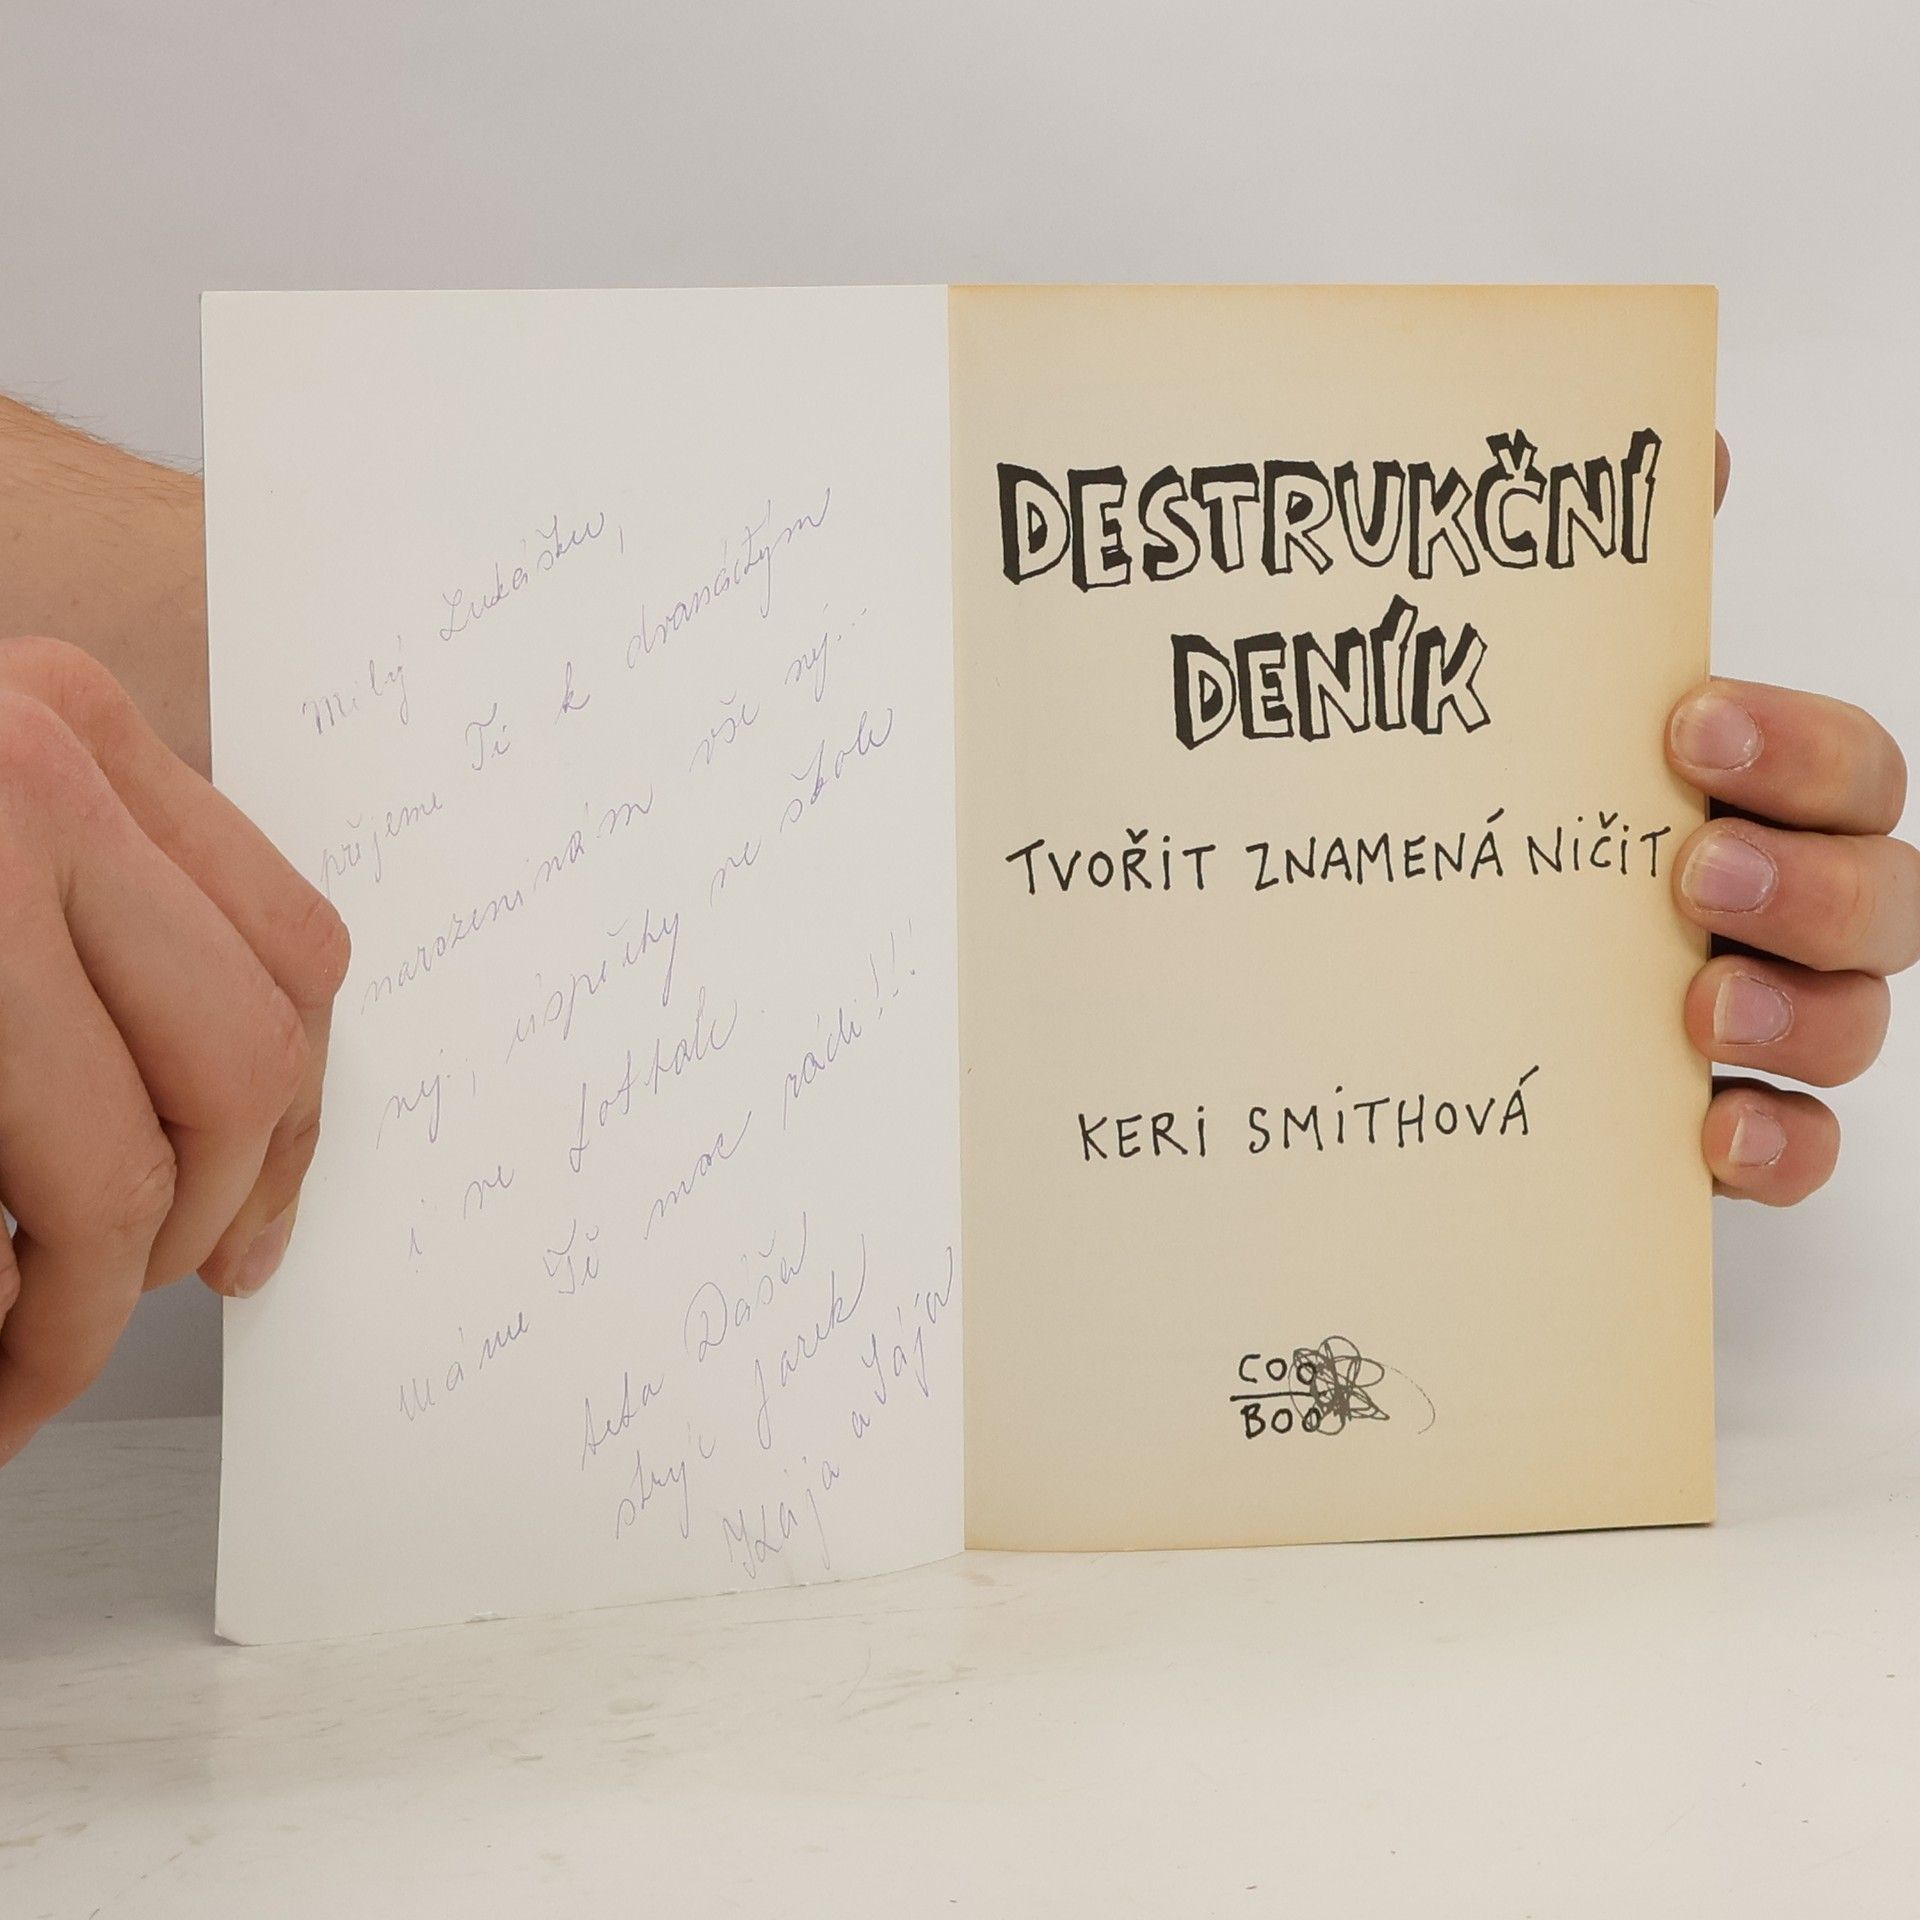 Milý Lukášku,
přejeme Ti k dvanáctým
narozeninám vše nej...
nej, úspěchy ve škole
i ve fotbale.
Máme Tě moc rádi!!!
teta Dáša
strýc Jarek
Kája a Jája
DESTRUKČNÍ
DENÍK
TVOŘIT ZNAMENÁ NIČIT
KERI SMITHOVÁ
COO
BOO